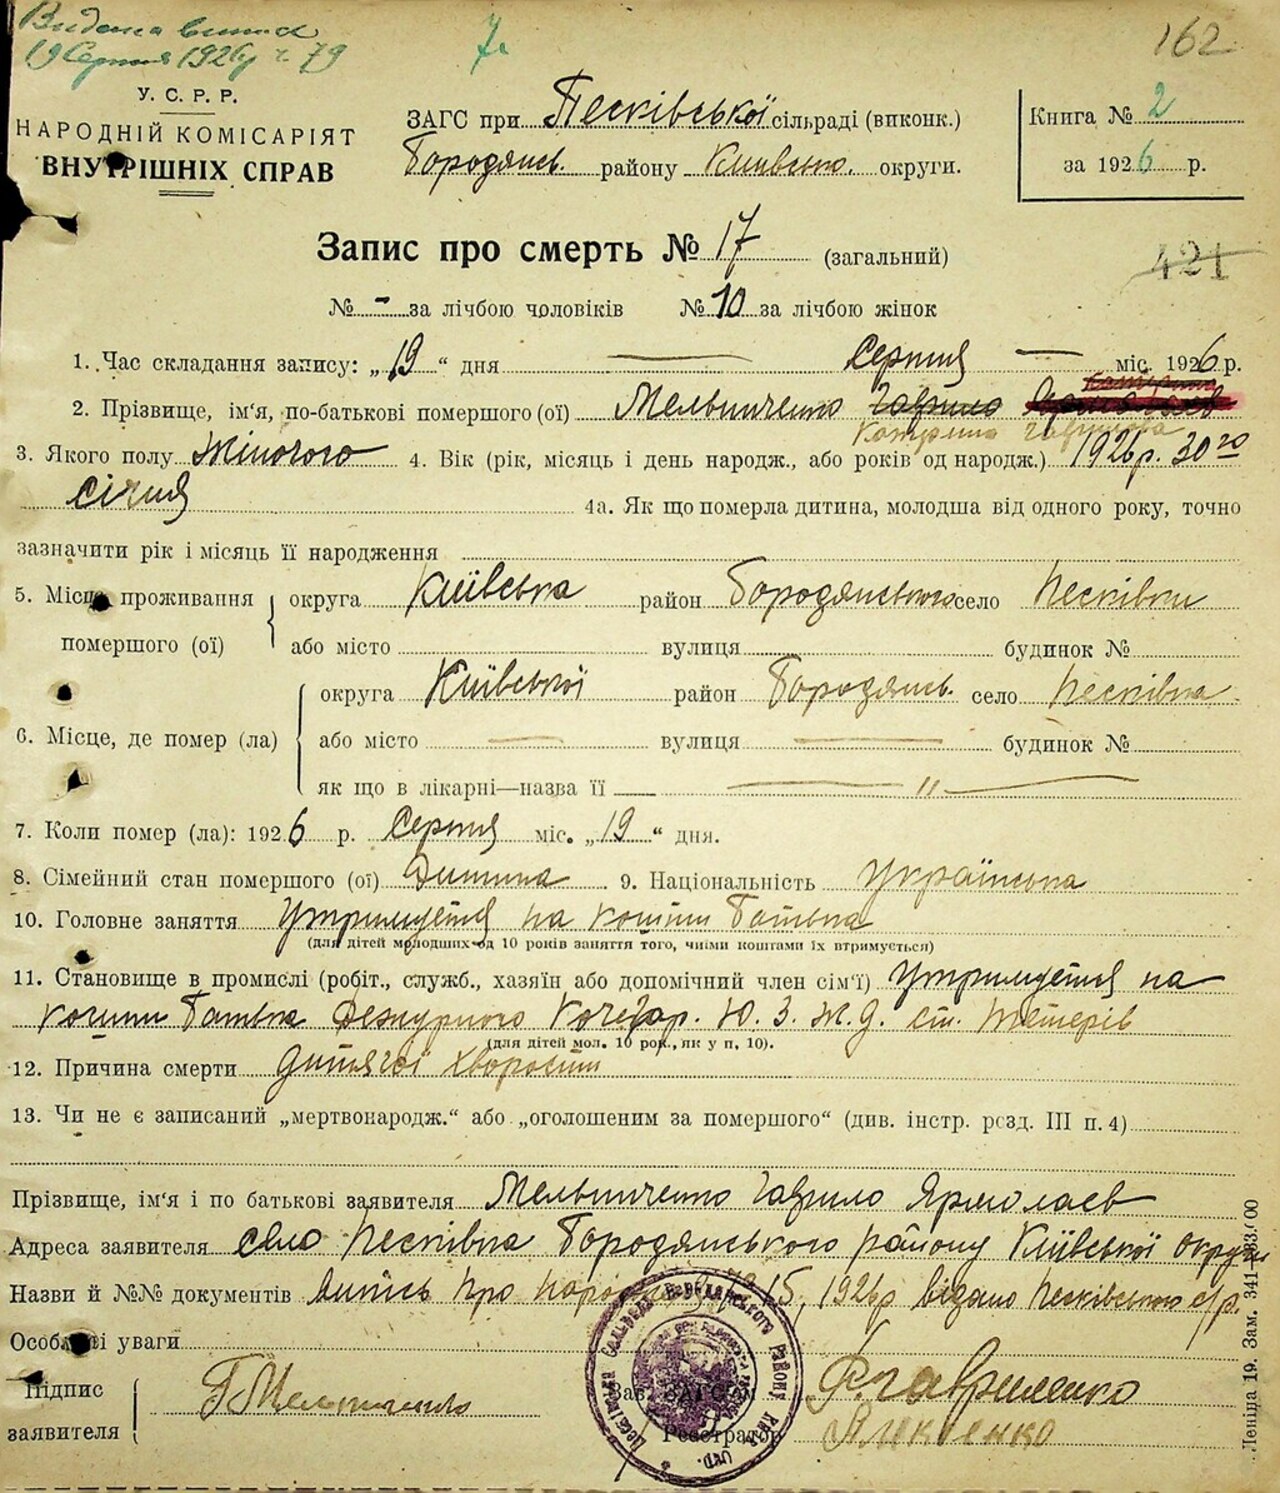 Видана виписка
19 Серпня 1926 р ч. 79
7.
162
У. С. Р. Р.
НАРОДНІЙ КОМІСАРІЯТ
ВНУТРІШНІХ СПРАВ
ЗАГС при Песківської сільраді (виконк.)
Бородянсь. району Київсько. округи.
Книга № 2
за 1926 р.
Запис про смерть № 17 (загальний)
421
№ - за лічбою чоловіків № 10 за лічбою жінок
1. Час складання запису: „19“ дня Серпня міс. 1926 р.
2. Прізвище, ім'я, по-батькові помершого (ої) Мельниченко Гаврило
Катерина Гаврилова
3. Якого полу Жіночого 4. Вік (рік, місяць і день народж., або років од народж.) 1926 р. 30го
Січня 4а. Як що померла дитина, молодша від одного року, точно
зазначити рік і місяць її народження
5. Місце проживання помершого (ої) округа Київська район Бородянського село Песківки
або місто вулиця будинок №
6. Місце, де помер (ла) округа Київської район Бородянсь. село Песківка
або місто вулиця будинок №
як що в лікарні—назва її — " —
7. Коли помер (ла): 1926 р. Серпня міс. „19“ дня.
8. Сімейний стан помершого (ої) Дитина 9. Національність Українська
10. Головне заняття Утримуется на кошти Батька
(для дітей молодших од 10 років заняття того, чиїми коштами їх втримується)
11. Становище в промислі (робіт., служб., хазяїн або допомічний член сім'ї) Утримуется на
кошти Батька Дежурного Кочегар. Ю. З. Ж. Д. ст. Тетерів
(для дітей мол. 10 рок., як у п. 10).
12. Причина смерти дитячої хворости
13. Чи не є записаний „мертвонародж.“ або „оголошеним за помершого“ (див. інстр. розд. III п. 4)
Прізвище, ім'я і по батькові заявителя Мельниченко Гаврило Ярмолаєв
Адреса заявителя село Песківка Бородянського району Київської округи
Назви й №№ документів випись про народ 1926 р видано Песківською с/р.
Особливі уваги
Підпис заявителя Г Мельниченко
Зав. ЗАГС'ом Гавриленко
Реєстратор Алексенко
Леніна 19. Зам. 341